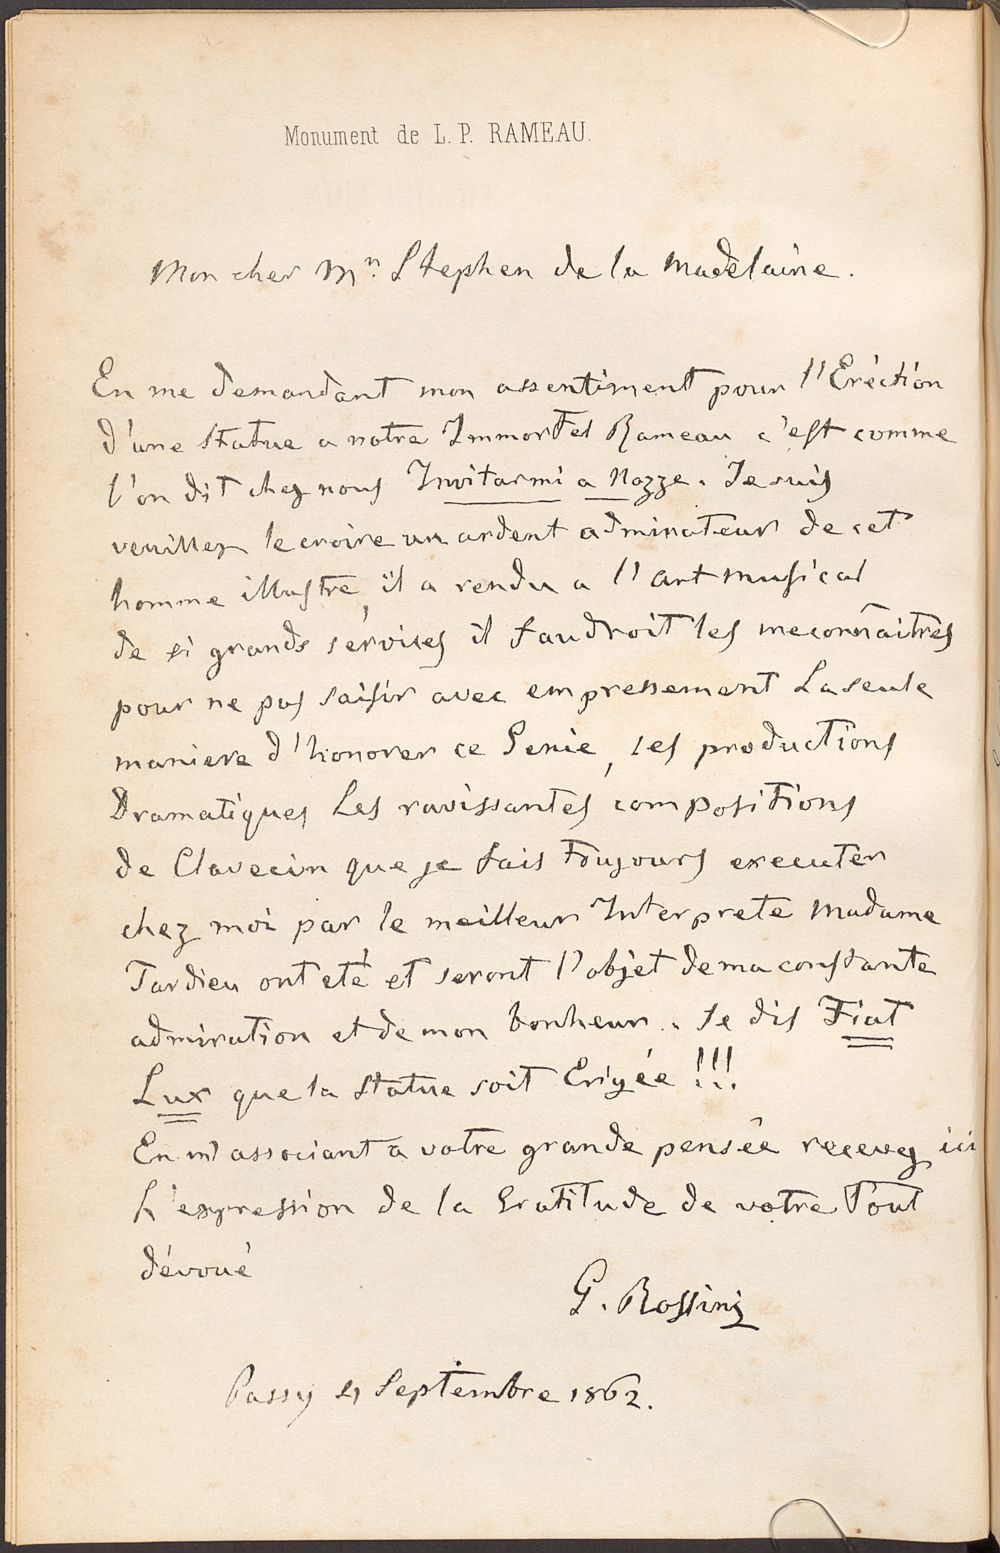 Monument de L. P. RAMEAU.
Mon cher Mr. Stephen de la Madelaine.
En me demandant mon assentiment pour l'Eréction
d'une Statue a notre Immortel Rameau c'est comme
l'on dit chez nous Invitarmi a Nozze. Je suis
veuillez le croire un ardent admirateur de cet
homme illustre, il a rendu a l'art musical
de si grands sérvices il faudroit les meconnaitres
pour ne pas saisir avec empressement La seule
maniere d'honorer ce Genie, ses productions
Dramatiques Les ravissantes compositions
de Clavecin que je fais toujours executer
chez moi par le meilleur Interprete Madame
Tardieu ont eté et seront l'objet de ma constante
admiration et de mon bonheur. Je dis Fiat
Lux que la Statue soit Erigée !!!
En m'associant a votre grande pensée recevez ici
L'expression de la Gratitude de votre Tout
dévoué
G. Rossini
Passy Septembre 1862.